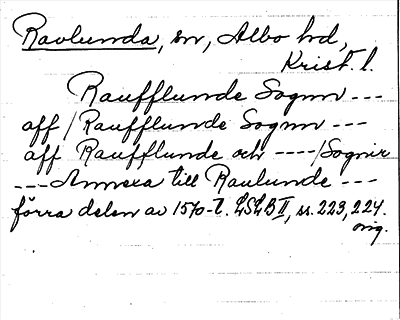 Ravlunda, sn, Albo hd,
Krist. l.
Raufflunde Sognn ---
aff / Raufflunde Sognn ---
aff Raufflunde och ---- / Sognir
--- Annexa till Raulunde ---
förra delen av 1570-t. LSLB II, ss. 223, 224.
orig.